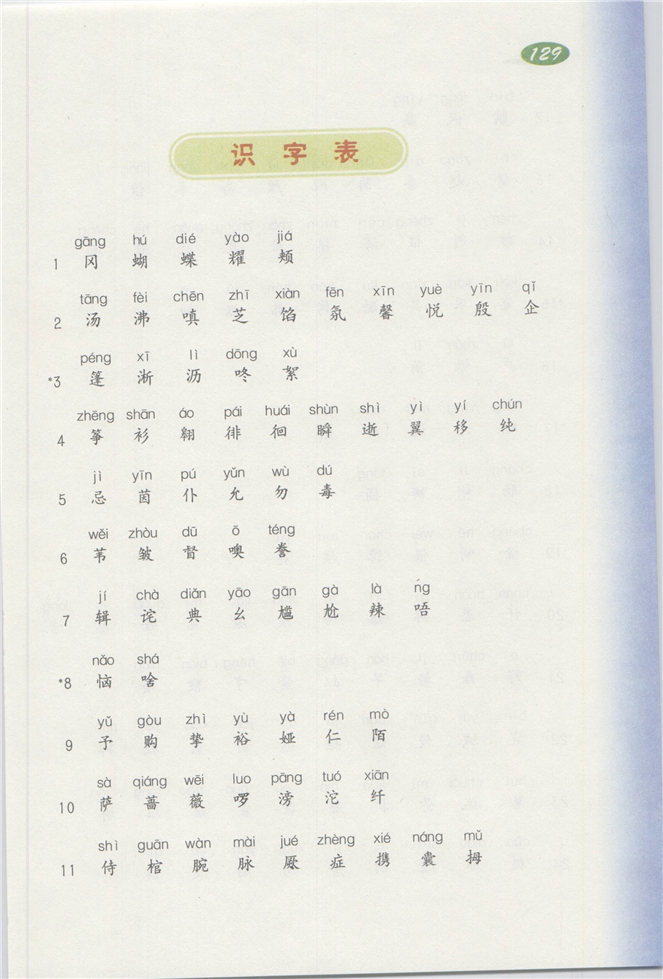 129
识字表
gāng hú dié yào jiá
1 冈 蝴 蝶 耀 颊
tāng fèi chēn zhī xiàn fēn xīn yuè yīn qǐ
2 汤 沸 嗔 芝 馅 氛 馨 悦 殷 企
péng xī lì dōng xù
*3 篷 淅 沥 咚 絮
zhēng shān áo pái huái shùn shì yì yí chún
4 筝 衫 翱 徘 徊 瞬 逝 翼 移 纯
jì yīn pú yǔn wù dú
5 忌 茵 仆 允 勿 毒
wěi zhòu dū ō téng
6 苇 皱 督 噢 誊
jí chà diǎn yāo gān gà là ńg
7 辑 诧 典 幺 尴 尬 辣 唔
nǎo shá
*8 恼 啥
yǔ gòu zhì yù yà rén mò
9 予 购 挚 裕 娅 仁 陌
sà qiáng wēi luo pāng tuó xiān
10 萨 蔷 薇 啰 滂 沱 纤
shì guān wàn mài jué zhèng xié náng mǔ
11 侍 棺 腕 脉 厥 症 携 囊 拇